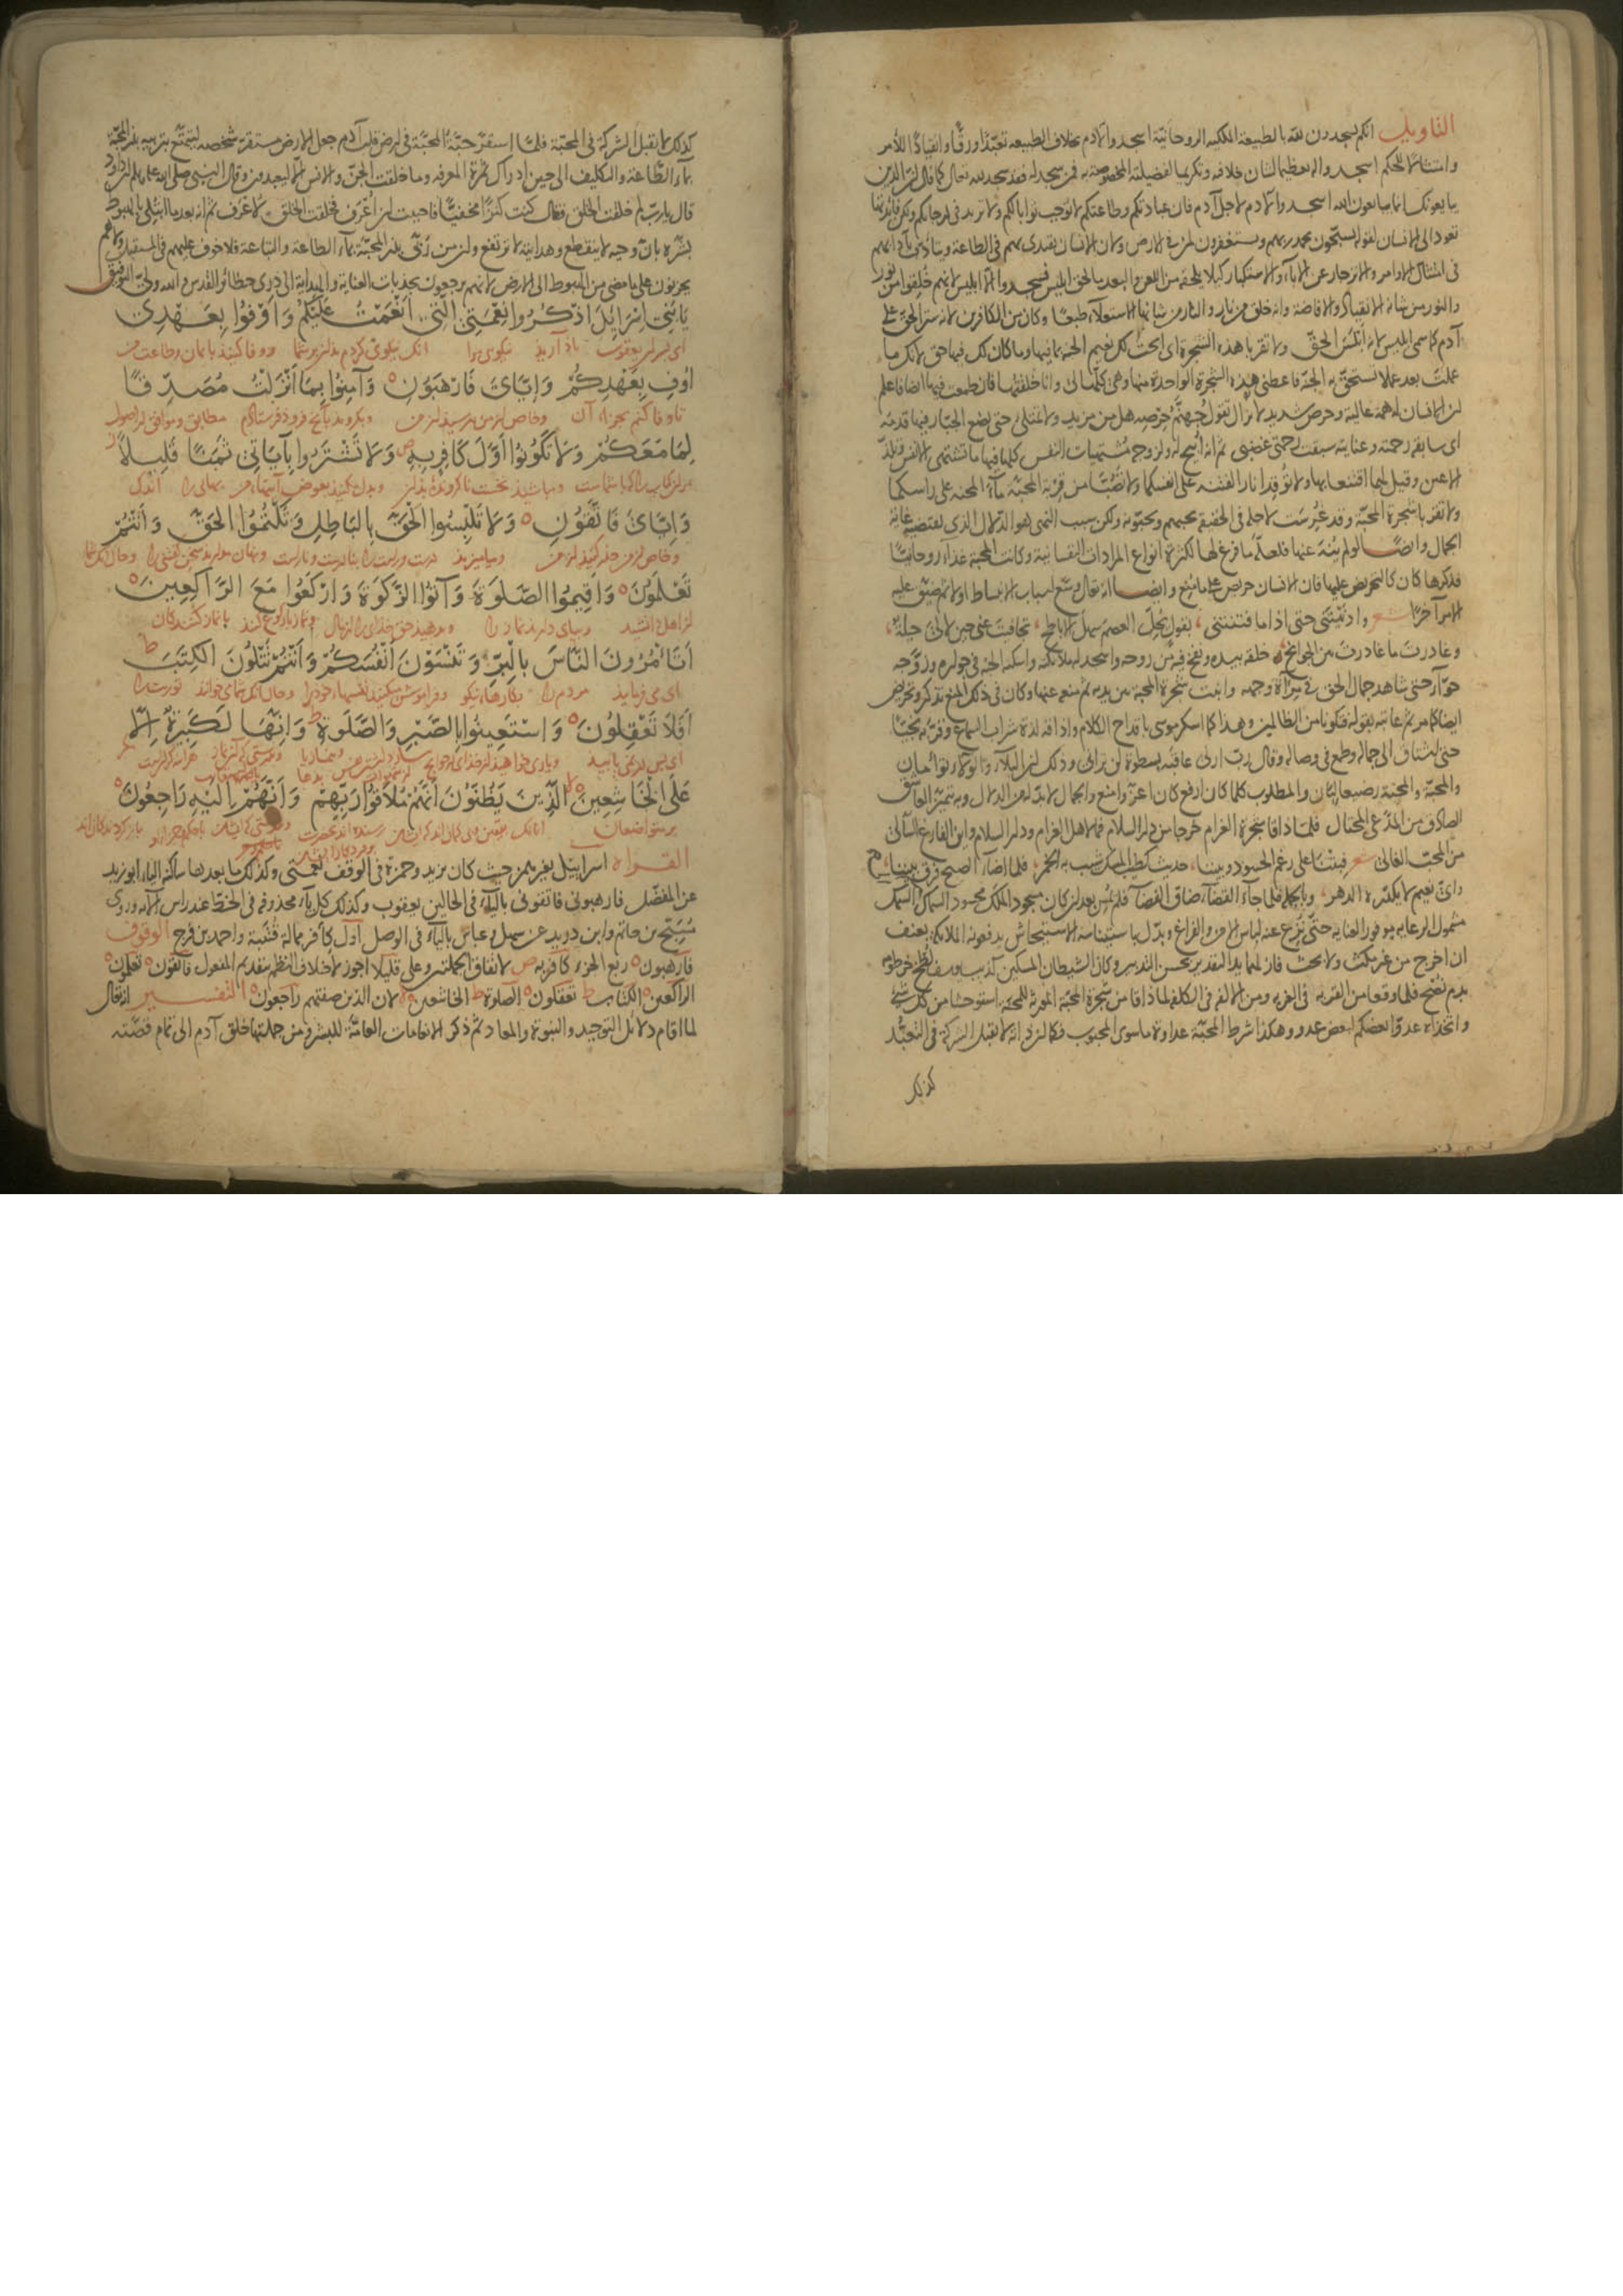 التاويل انكم تسجدون لله بالطبيعة الملكية الروحانية اسجدوا لآدم بخلاف الطبيعة تعبدا ورقا وانقيادا للأمر
وامتثالا للحكم اسجدوا له تعظيما لشان خلافته وتكريما لفضيلته المخصوصة به فمن سجد له فقد سجد لله تعالى كما قال ان الذين
يبايعونك انما يبايعون الله اسجدوا لآدم لاجل آدم فان عبادتكم وطاعتكم لا توجب ثوابا لكم ولا تزيد في درجاتكم ولكن فائدتها
تعود الى الانسان لقوله يسبحون بحمد ربهم ويستغفرون لمن في الارض ولان الانسان يقتدى بهم في الطاعة ويتادب بآدابهم
في امتثال الاوامر والانزجار عن الاباء والاستكبار كيلا يلحقه من اللعن والبعد ما لحق ابليس فسجدوا الا ابليس لانهم خلقوا من نور
والنور من شانه الانقياد والافاضة وانه خلق من نار والنار من شانها الاستعلاء طبعا وكان من الكافرين لانه ستر الحق على
آدم كما سمى ابليس لانه ابلس الحق ولا تقربا هذه الشجرة اى ابحت لك نعيم الجنة بما فيها وما كان لك فيها حق لانك ما
عملت بعد عملا تستحق به الجنة فاعطنى هذه الشجرة الواحدة منها وهى كلها لى وانا خلقتها فان طمعت فيها ايضا فاعلم
ان الانسان له همة عالية وحرص شديد لا تزال تقول جهنم حرصه هل من مزيد ولا تمتلئ حتى يضع الجبار فيها قدمه
اى سابقة رحمته وعنايته سبقت رحمتى غضبى ثم انه ابيح له ولزوجه مشتهيات النفس كلها فيها ما تشتهى الانفس وتلذ
الاعين وقيل لهما اقنعا بها ولا توقدا نار الفتنة على انفسكما ولا تصبا من قربة المحبة ماء المحنة على راسكما
ولا تقربا شجرة المحبة وقد غرست لاجله فى الحقيقة يحبهم ويحبونه ولكن سبب النهى هو الدلال الذى يقتضيه غاية
الجمال وايضا لو لم ينه عنها فلعله ما فرغ لها لكثرة انواع المرادات النفسانية وكانت المحبة غذاء روحانيا
فذكرها كان كالتحريض عليها فان الانسان حريص على ما منع وايضا انه تعالى وسع اسباب الانبساط اولا ثم ضيق عليه
الامر آخرا شعر وادنيتنى حتى اذا ما فتنتنى ، بقول يحل العصم سهل الاباطح ، تجافيت عنى حين لا لى حيلة ،
وغادرت ما غادرت بين الجوانح ، خلقه بيده ونفخ فيه من روحه واسجد له ملائكته واسكنه الجنة فى جواره وزوجه
حواء حتى شاهد جمال الحق فى مرآة وجهه وانبت شجرة المحبة بين يديه ثم منع عنها وكان فى ذلك المنع تذكر وتحريض
ايضا كما مر ثم عاتبه بقوله فتكونا من الظالمين وهذا كما اسكر موسى باقداح الكلام واذاقه لذة شراب السماع وقربه نجيا
حتى اشتاق الى جماله وطمع فى وصاله وقال رب ارنى عاقبه بسطوة لن ترانى وذلك ان البلاء والولاء توامان
والمحبة والمحنة رضيعا لبان والمطلوب كلما كان ارفع كان اعز وامنع والجمال لا بد له من الدلال وبه يتميز العاشق
الصادق من المدعى المحتال فلما ذاقا شجرة الغرام خرجا من دار السلام فما لاهل الغرام ودار السلام واين الفارغ السالى
من المحب الغالى شعر فبتنا على رغم الحسود وبيننا ، حديث كطيب المسك شيب به الخمر ، فلما اضاء الصبح فرق بيننا ،
واى نعيم لا يكدره الدهر ، وبالجملة فلما جاء القضاء ضاق الفضاء فلم يمس بعد ان كان مسجود الملك محسود السماك والسمك
مشمول الرعاية موفور العناية حتى نزع عنه لباس الامن والفراغ وبدل باستيناسه الاستيحاش يدفعونه الملائكة بعنف
ان اخرج من غير مكث ولا بحث فازلهما يد التقدير بحسن التدبير وكان الشيطان المسكين كذئب يوسف لطخ خرطومه
بدم نصح فلما وقعا من القربة فى الغربة ومن الالفة فى الكلفة لما ذاقا من شجرة المحبة المورثة للمحنة استوحشا من كل شئ
واتخذاه عدوا بعضكم لبعض عدو وهكذا شرط المحبة عداوة ما سوى المحبوب فكما ان ذاته لا تقبل الشركة فى التعبد
كذلك
كذلك لا تقبل الشركة فى المحبة فلما استقر حبة المحبة فى ارض قلب آدم جعل الارض مستقرة شخصه ليتمتع بتربية بذر المحبة
بماء الطاعة والتكليف الى حين ادراك ثمرة المعرفة وما خلقت الجن والانس الا ليعبدون وقال النبى صلى الله عليه وسلم ان داود
قال يا رب لم خلقت الخلق فقال كنت كنزا مخفيا فاحببت ان اعرف فخلقت الخلق لاعرف ثم انه بعد ما ابتلى بالهبوط
بشره بان وحيه لا ينقطع وهدايته لا ترتفع وان من ربى بذر المحبة بماء الطاعة والتباعة فلا خوف عليهم فى المستقبل ولا هم
يحزنون على ما مضى من الهبوط الى الارض لانهم يرجعون بجذبات العناية والهداية الى ذرى حظائر القدس والله ولى التوفيق
يَا بَنِي اِسْرَائِيلَ اذْكُرُوا نِعْمَتِيَ الَّتِي اَنْعَمْتُ عَلَيْكُمْ وَاَوْفُوا بِعَهْدِي
اى پسران يعقوب ياد آريد نيكوى مرا آنك نيكوى كردم بدان بر شما ووفا كنيد بايمان وطاعت من
اُوفِ بِعَهْدِكُمْ وَاِيَّايَ فَارْهَبُونِ ۝ وَآمِنُوا بِمَا اَنْزَلْتُ مُصَدِّقًا
تا وفا كنم بجزاء آن وخاص از من بترسيد از من وبگرويد بآنچ فرو فرستادم مطابق وموافق از اصول
لِمَا مَعَكُمْ وَلَا تَكُونُوا اَوَّلَ كَافِرٍ بِهِ وَلَا تَشْتَرُوا بِآيَاتِي ثَمَنًا قَلِيلًا
مر ان كتاب را كه با شماست ومباشيد نخست ناگرونده بدان وبدل مكنيد بعوض آيتهاء من بهائى را اندك
وَاِيَّايَ فَاتَّقُونِ ۝ وَلَا تَلْبِسُوا الْحَقَّ بِالْبَاطِلِ وَتَكْتُمُوا الْحَقَّ وَاَنْتُمْ
وخاص از من حذر كنيد از من ومياميزيد درست وراست را بنادرست وناراست
تَعْلَمُونَ ۝ وَاَقِيمُوا الصَّلٰوةَ وَآتُوا الزَّكٰوةَ وَارْكَعُوا مَعَ الرَّاكِعِينَ ۝
وبپاى داريد نماز را وبدهيد حق خداى را از مال ونماز با ركوع كنيد با نماز كنندگان
اَتَاْمُرُونَ النَّاسَ بِالْبِرِّ وَتَنْسَوْنَ اَنْفُسَكُمْ وَاَنْتُمْ تَتْلُونَ الْكِتٰبَ ط
اى مى فرماييد مردم را بكارهاء نيكو وفراموش ميكنيد نفسهاء خود را وحال آنك شما مى خوانيد توريت را
اَفَلَا تَعْقِلُونَ ۝ وَاسْتَعِينُوا بِالصَّبْرِ وَالصَّلٰوةِ ط وَاِنَّهَا لَكَبِيرَةٌ اِلَّا
عَلَى الْخَاشِعِينَ ۝ الَّذِينَ يَظُنُّونَ اَنَّهُمْ مُلَاقُوا رَبِّهِمْ وَاَنَّهُمْ اِلَيْهِ رَاجِعُونَ ۝
بر متواضعان
القراة اسراييل بغير همز حيث كان يزيد وحمزة فى الوقف نعمتى وكذلك ما بعدها ساكنة الياء ابو زيد
عن المفضل فارهبونى فاتقونى بالياء فى الحالين يعقوب وكذلك كل ياء محذوفة فى الخط عند راس الآية وروى
سهل وعباس بالياء فى الوصل اول كافر ممالة قتيبة واحمد بن فرج الوقوف
فارهبون ۝ ربع الجزء كافر به ص لاتفاق الجملتين وعلى قليلا اجوز لاختلاف النظم بتقديم المفعول فاتقون ۝ تعلمون ۝
الراكعين ۝ الكتاب ط تعقلون ۝ الصلوة ط الخاشعين ۝ لا لان الذين صفتهم راجعون ۝ التفسير انه تعالى
لما اقام دلائل التوحيد والنبوة والمعاد ثم ذكر الانعامات العامة للبشر ومن جملتها خلق آدم الى تمام قصته